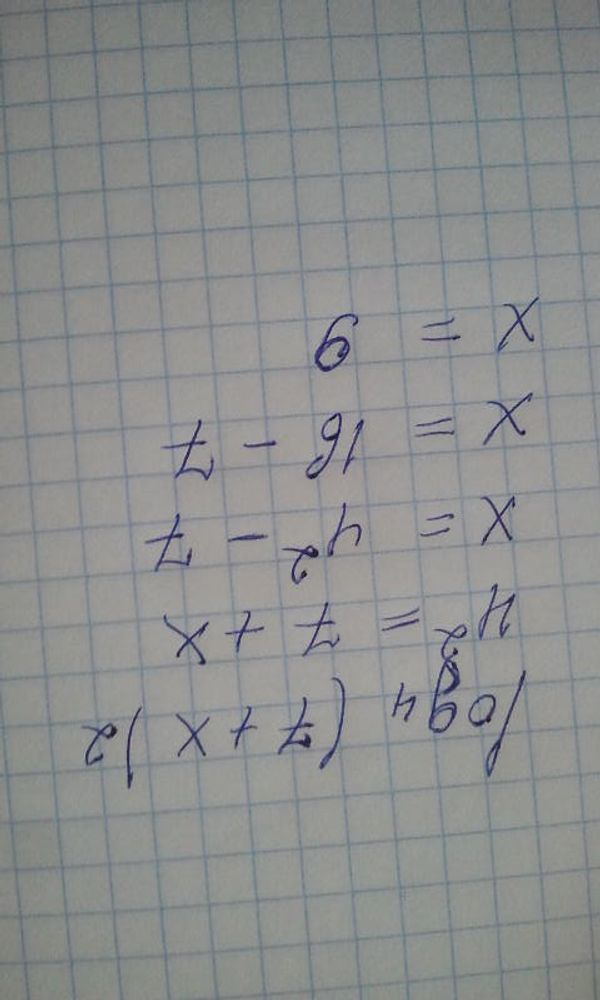 log₄ (7 + x) 2
4² = 7 + x
x = 4² - 7
x = 16 - 7
x = 9